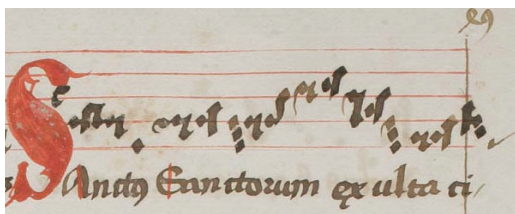 SAnctꝰ Sanctorum ex ulta ci